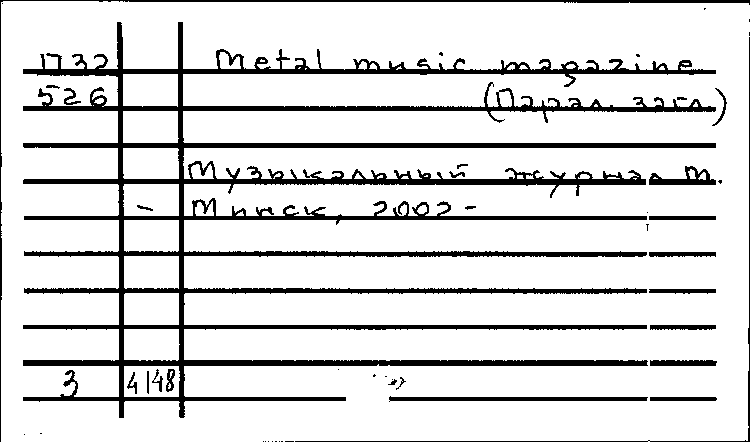 1732 Metal music magazine
526 (Парал. загл.)
Музыкальный журнал м.
- Минск, 2002 -
3 4148